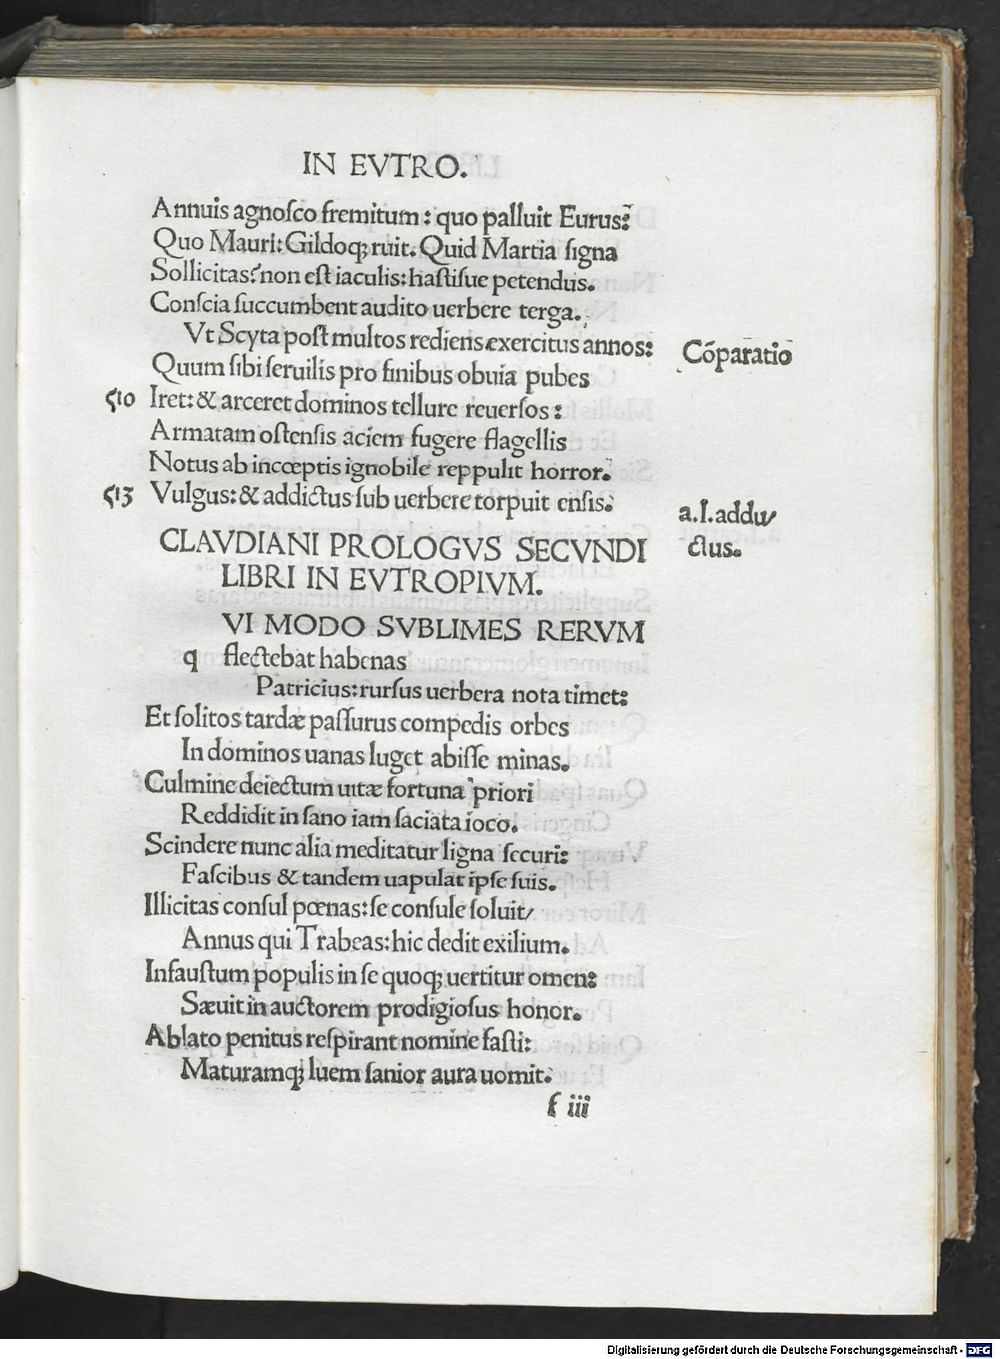 IN EVTRO.
Annuis agnoſco fremitum: quo palluit Eurus?
Quo Mauri: Gildoqꝫ ruit. Quid Martia ſigna
Sollicitas? non eſt iaculis: haſtiſue petendus.
Conſcia ſuccumbent audito uerbere terga.
Vt Scyta poſt multos rediens exercitus annos:
Cōparatio
Quum ſibi ſeruilis pro finibus obuia pubes
510 Iret: & arceret dominos tellure reuerſos:
Armatam oſtenſis aciem fugere flagellis
Notus ab incœptis ignobile reppulit horror.
513 Vulgus: & addictus ſub uerbere torpuit enſis.
a.l.addu/
ctus.
CLAVDIANI PROLOGVS SECVNDI
LIBRI IN EVTROPIVM.
VI MODO SVBLIMES RERVM
q flectebat habenas
Patricius: rurſus uerbera nota timet:
Et ſolitos tardæ paſſurus compedis orbes
In dominos uanas luget abiſſe minas.
Culmine deiectum uitæ fortuna priori
Reddidit in ſano iam ſaciata ioco.
Scindere nunc alia meditatur ligna ſecuri:
Faſcibus & tandem uapulat ipſe ſuis.
Illicitas conſul pœnas: ſe conſule ſoluit/
Annus qui Trabeas: hic dedit exilium.
Infauſtum populis in ſe quoqꝫ uertitur omen:
Sæuit in auctorem prodigioſus honor.
Ablato penitus reſpirant nomine faſti:
Maturamqꝫ luem ſanior aura uomit.
f iii
Digitalisierung gefördert durch die Deutsche Forschungsgemeinschaft - DFG